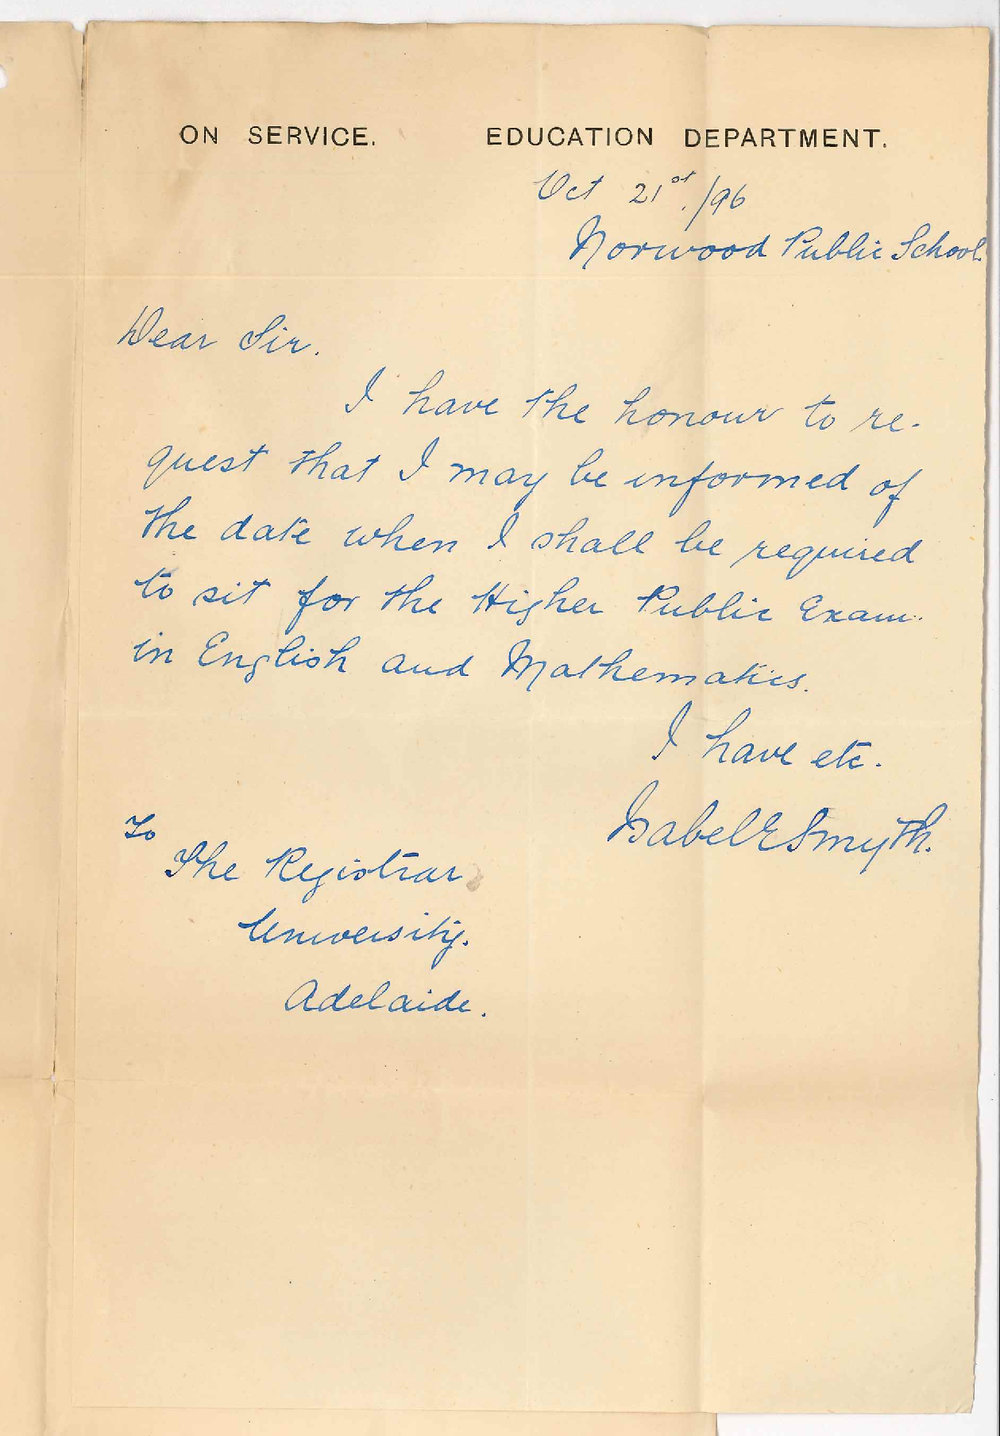 ON SERVICE. EDUCATION DEPARTMENT.
Oct 21st./96
Norwood Public School.
Dear Sir.
I have the honour to re-
quest that I may be informed of
the date when I shall be required
to sit for the Higher Public Exam.
in English and Mathematics.
I have etc.
Isabel E Smyth.
To
The Registrar
University.
Adelaide.